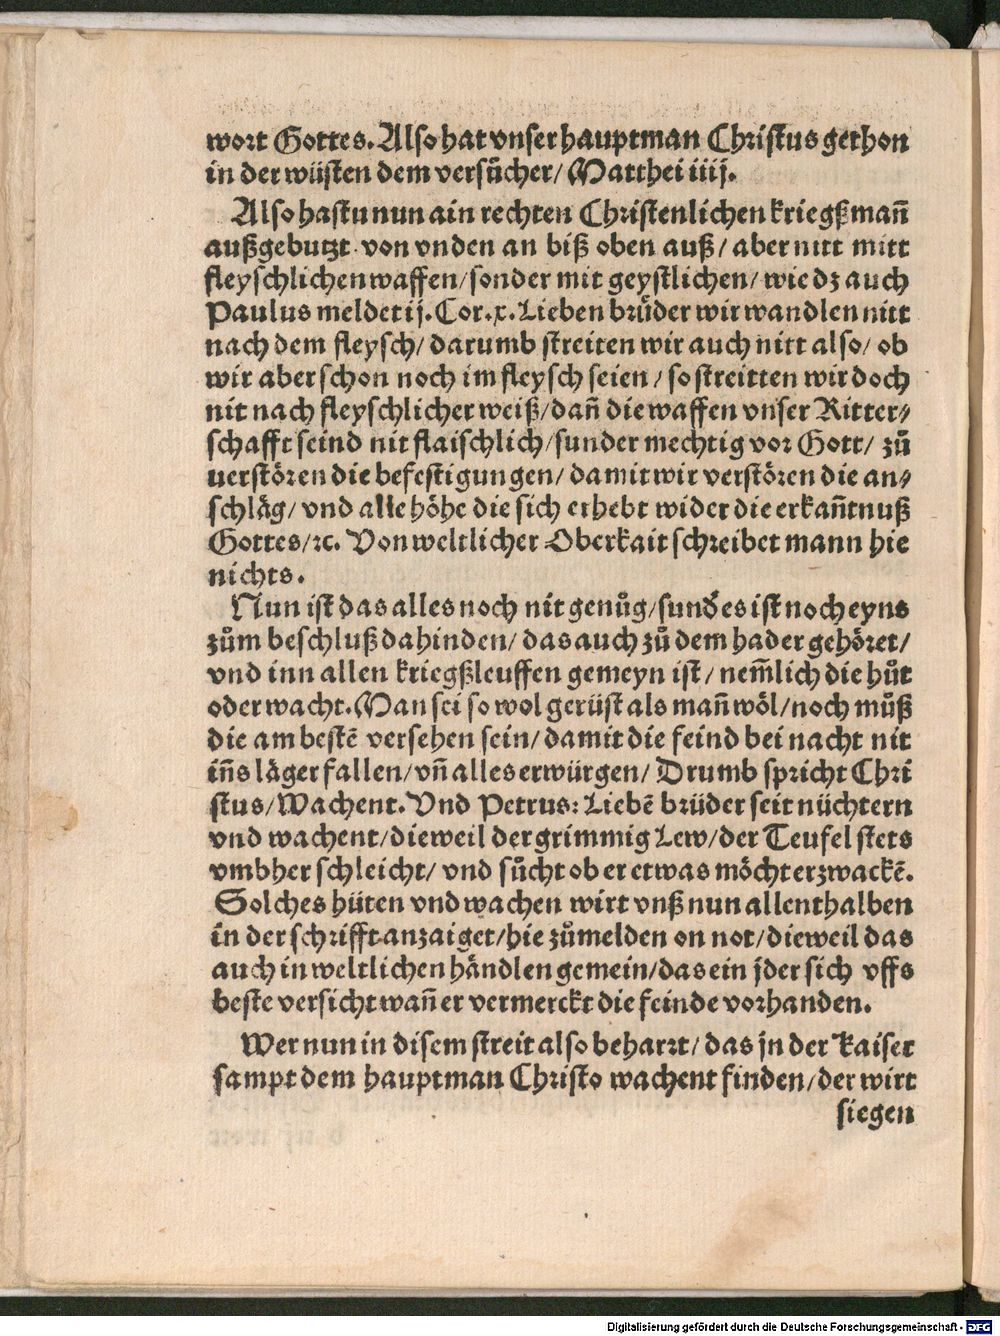 wort Gottes. Also hat vnser hauptman Christus gethon
in der wüsten dem versůcher/ Matthei iiij.
Also hastu nun ain rechten Christenlichen kriegßman̄
außgebutzt von vnden an biß oben auß/ aber nitt mitt
fleyschlichen waffen/ sonder mit geystlichen/ wie dz auch
Paulus meldet ij. Cor. x. Lieben brůder wir wandlen nitt
nach dem fleysch/ darumb streiten wir auch nitt also/ ob
wir aber schon noch im fleysch seien/ so streitten wir doch
nit nach fleyschlicher weiß/ dan̄ die waffen vnser Ritter⸗
schafft seind nit flaischlich/ sunder mechtig vor Gott/ zů
uerstören die befestigungen/ damit wir verstören die an⸗
schläg/ vnd alle höhe die sich erhebt wider die erkan̄tnuß
Gottes/ ꝛc. Von weltlicher Oberkait schreibet mann hie
nichts.
Nun ist das alles noch nit genůg/ sunď es ist noch eyns
zům beschluß dahinden/ das auch zů dem hader gehöret/
vnd inn allen kriegßleuffen gemeyn ist/ nem̄lich die hůt
oder wacht. Man sei so wol gerüst als man̄ wöl/ noch můß
die am bestē versehen sein/ damit die feind bei nacht nit
in̄s läger fallen/ vn̄ alles erwürgen/ Drumb spricht Chri
stus/ Wachent. Vnd Petrus: Liebē brüder seit nüchtern
vnd wachent/ dieweil der grimmig Lew/ der Teufel stets
vmbher schleicht/ vnd sůcht ob er etwas möcht erzwackē.
Solches hüten vnd wachen wirt vnß nun allenthalben
in der schrifft anzaiget/ hie zůmelden on not/ dieweil das
auch in weltlichen händlen gemein/ das ein jder sich vffs
beste versicht wan̄ er vermerckt die feinde vorhanden.
Wer nun in disem streit also beharrt/ das jn der kaiser
sampt dem hauptman Christo wachent finden/ der wirt
siegen
Digitalisierung gefördert durch die Deutsche Forschungsgemeinschaft - DFG